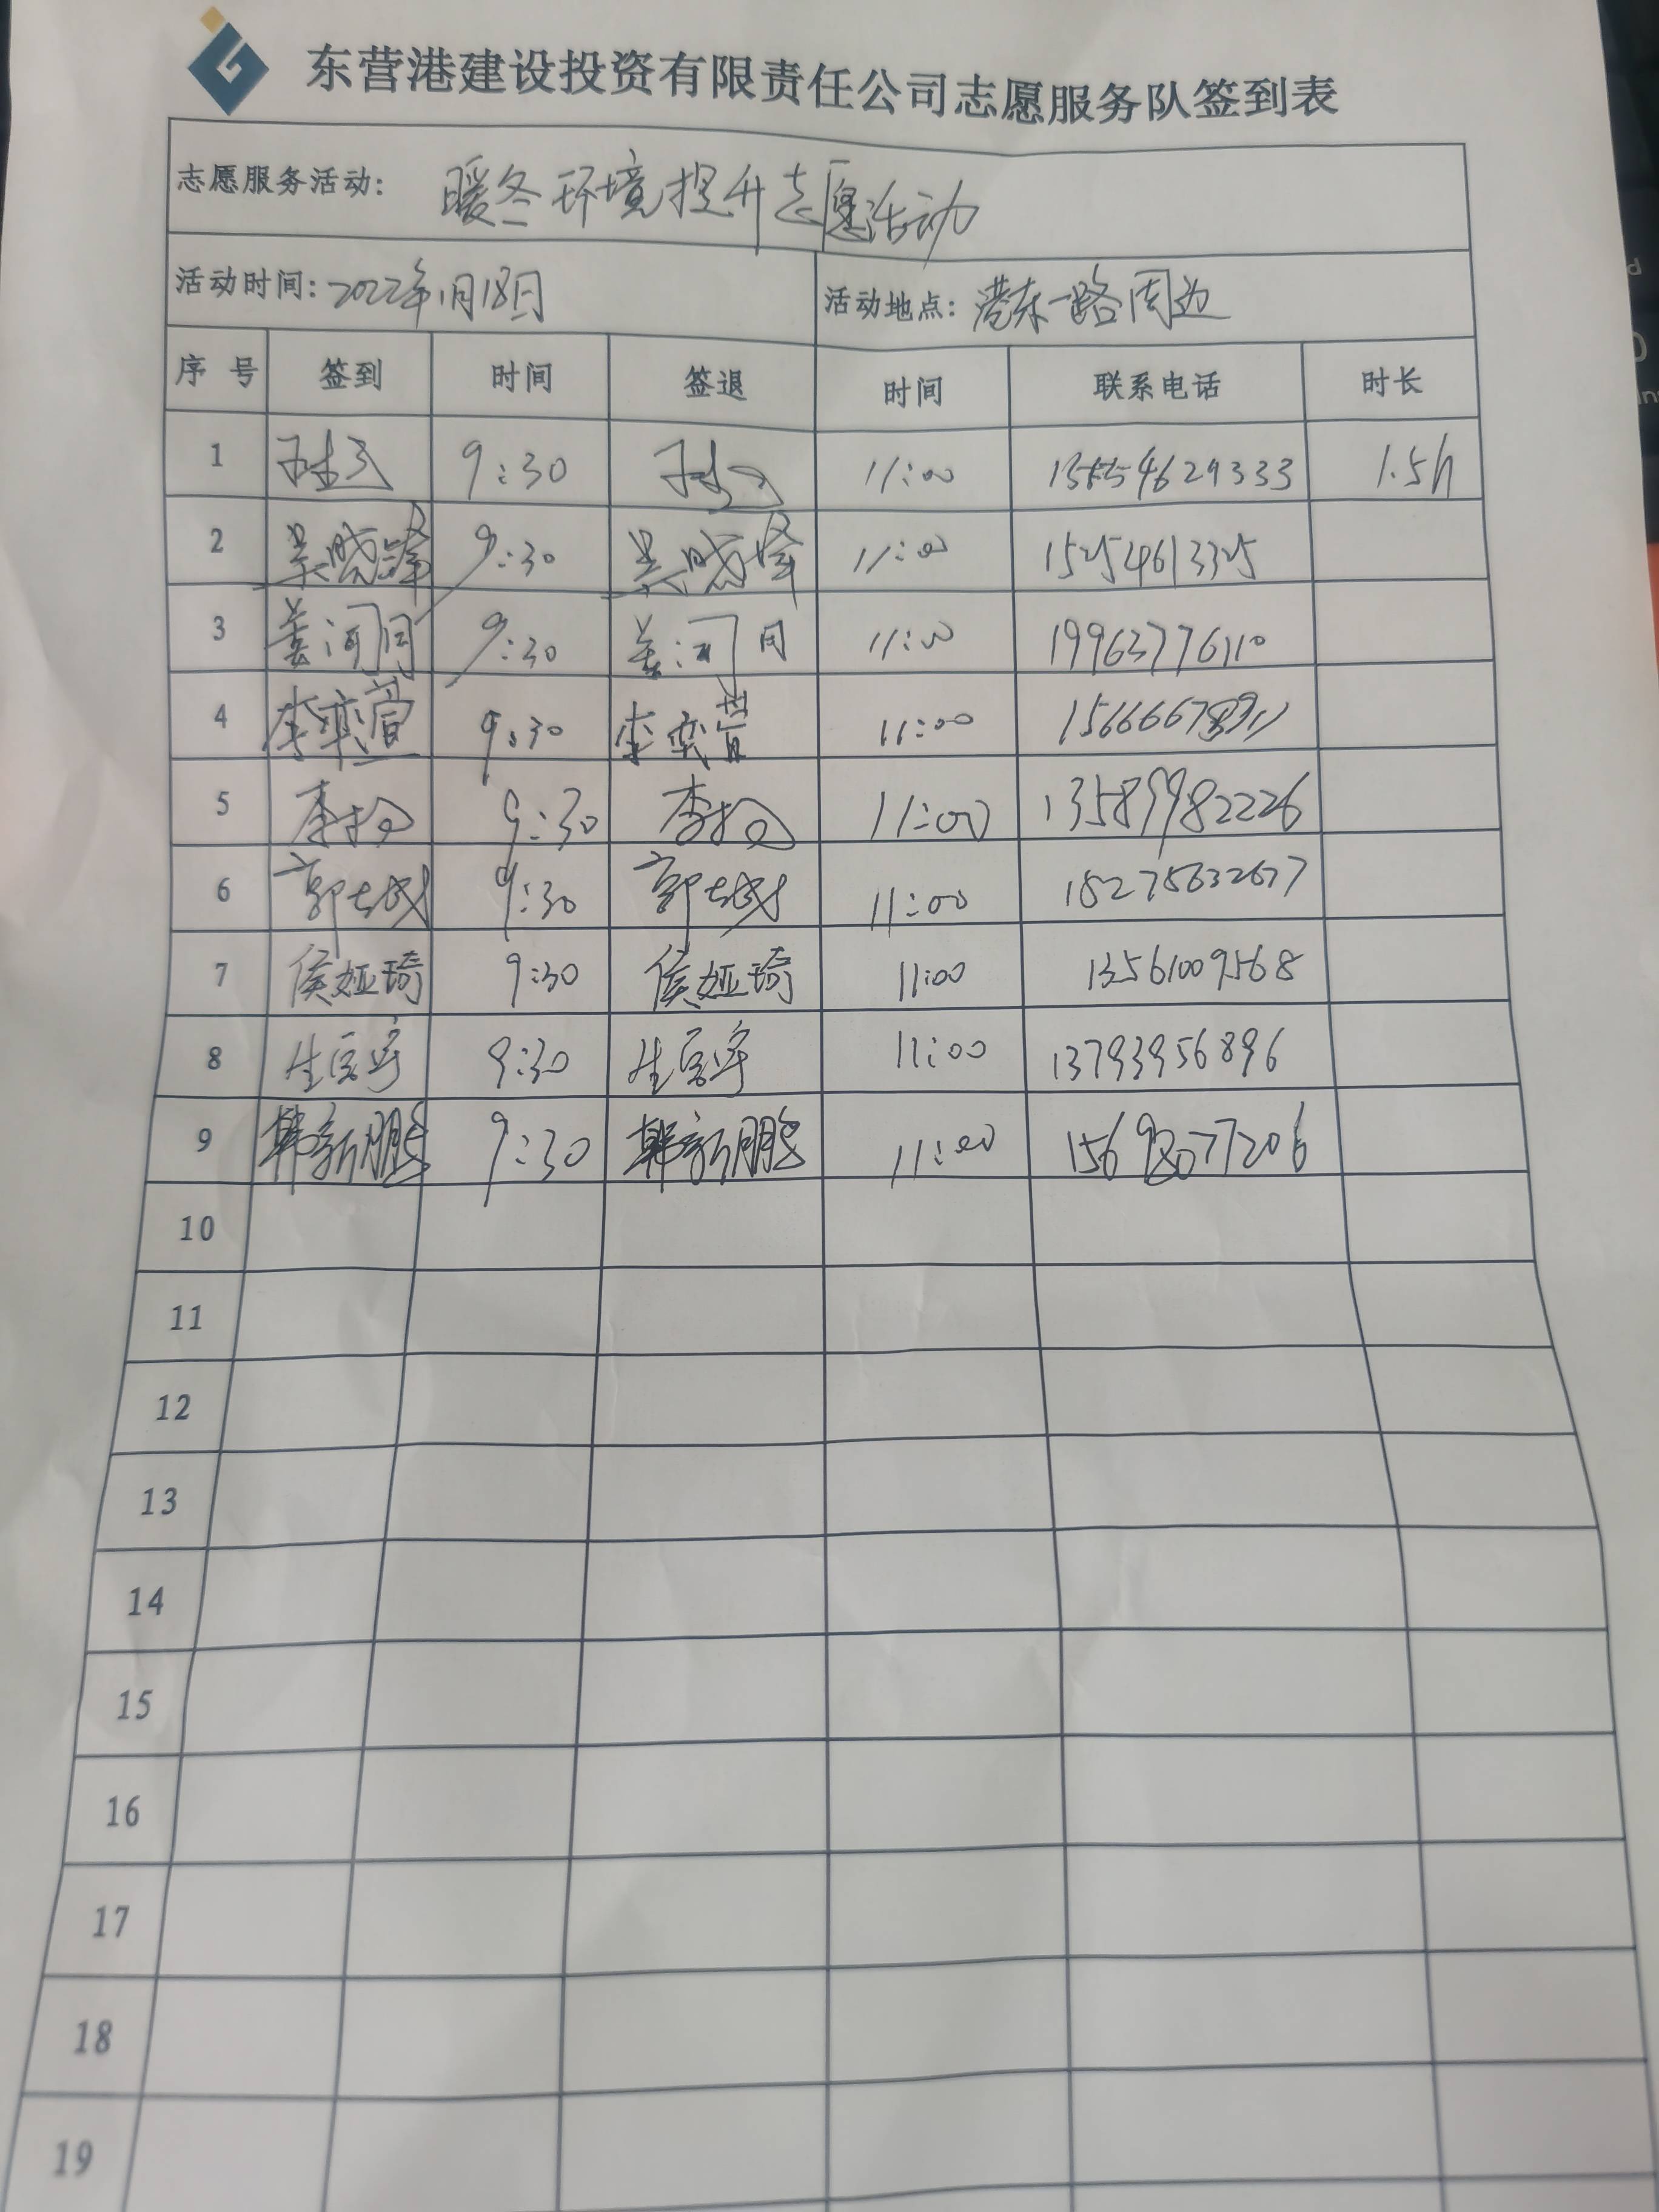 东营港建设投资有限责任公司志愿服务队签到表
志愿服务活动: 暖冬环境提升志愿活动
活动时间: 2022年1月18日 活动地点: 港东一路周边
序 号 签到 时间 签退 时间 联系电话 时长
1 9:30 11:00 1.5h
2 吴晓峰 9:30 吴晓峰 11:00 15254613325
3 姜河同 9:30 姜河同 11:00
4 李奕萱 9:30 李奕萱 11:00
5 9:30 11:00 13589982226
6 9:30 11:00
7 侯娅琦 9:30 侯娅琦 11:00 13561009568
8 9:30 11:00 13793956896
9 韩新鹏 9:30 韩新鹏 11:00
10
11
12
13
14
15
16
17
18
19